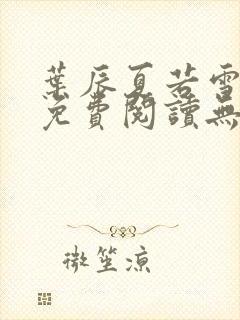 葉辰夏若雪
免費閱讀無
微笙涼